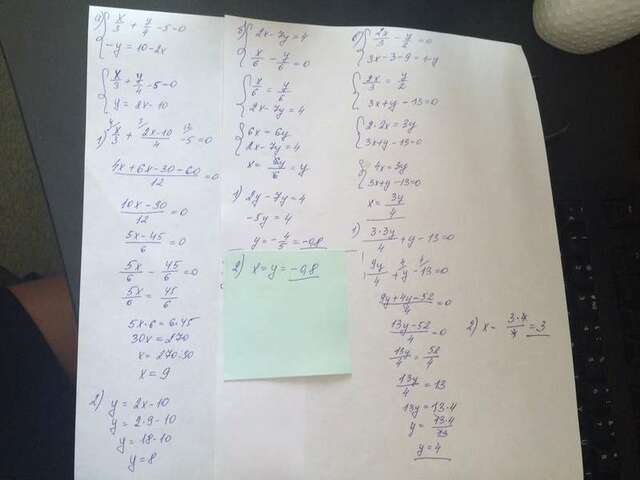 а) { x/3 + y/4 - 5 = 0
-y = 10 - 2x
{ x/3 + y/4 - 5 = 0
y = 2x - 10
1) x/3 + (2x-10)/4 - 5 = 0
(4x + 6x - 30 - 60)/12 = 0
(10x - 90)/12 = 0
(5x - 45)/6 = 0
5x/6 - 45/6 = 0
5x/6 = 45/6
5x·6 = 6·45
30x = 270
x = 270:30
x = 9
2) y = 2x - 10
y = 2·9 - 10
y = 18 - 10
y = 8
б) { 2x - 7y = 4
x/6 - y/6 = 0
{ x/6 = y/6
2x - 7y = 4
{ 6x = 6y
2x - 7y = 4
x = 6y/6 = y
1) 2y - 7y = 4
-5y = 4
y = -4/5 = -0,8
2) x = y = -0,8
{ 2x/3 - y/2 = 0
3x - 3 - 9 = 1 - y
{ 2x/3 = y/2
3x + y - 13 = 0
{ 2·2x = 3y
3x + y - 13 = 0
{ 4x = 3y
3x + y - 13 = 0
x = 3y/4
1) 3·3y/4 + y - 13 = 0
9y/4 + y - 13 = 0
(9y + 4y - 52)/4 = 0
(13y - 52)/4 = 0
13y/4 = 52/4
13y/4 = 13
13y = 13·4
y = 13·4/13
y = 4
2) x = 3·4/4 = 3